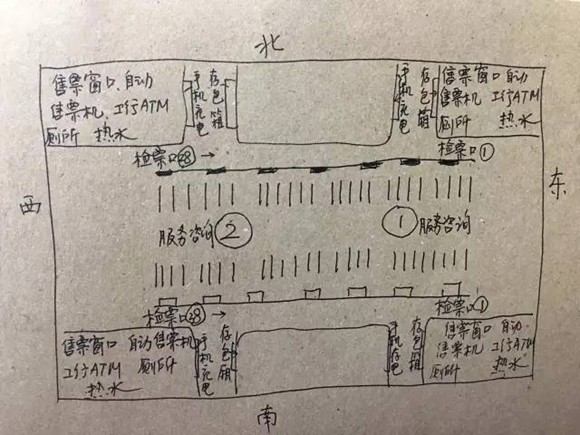 北
售票窗口、自动
售票机、工行ATM
厕所 热水
手机充电
存包箱
手机充电
存包箱
售票窗口 自动
售票机 工行ATM
厕所 热水
检票口28→
检票口①
西
东
服务咨询②
①服务咨询
检票口28→
检票口①
售票窗口 自动售票机
工行ATM 厕所
热水
手机充电
存包箱
手机存电
存包箱
售票窗口 自动
售票机 工行ATM
厕所 热水
南